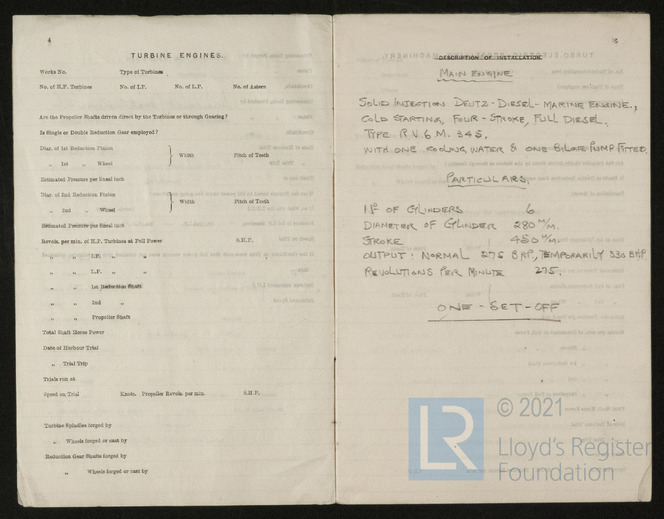 4
TURBINE ENGINES.
Works No. Type of Turbines
No. of H.P. Turbines No. of I.P. No. of L.P. No. of Astern
Are the Propeller Shafts driven direct by the Turbines or through Gearing?
Is Single or Double Reduction Gear employed?
Diar. of 1st Reduction Pinion
„ 1st „ Wheel } Width Pitch of Teeth
Estimated Pressure per lineal inch
Diar. of 2nd Reduction Pinion
„ 2nd „ Wheel } Width Pitch of Teeth
Estimated Pressure per lineal inch
Revols. per min. of H.P. Turbines at Full Power S.H.P.
„ „ I.P. „ „
„ „ L.P. „ „
„ „ 1st Reduction Shaft
„ „ 2nd „
„ „ Propeller Shaft
Total Shaft Horse Power
Date of Harbour Trial
„ Trial Trip
Trials run at
Speed on Trial Knots. Propeller Revols. per min. S.H.P.
Turbine Spindles forged by
„ Wheels forged or cast by
Reduction Gear Shafts forged by
„ Wheels forged or cast by
DESCRIPTION OF INSTALLATION.
MAIN ENGINE
SOLID INJECTION DEUTZ-DIESEL-MARINE ENGINE,
COLD STARTING, FOUR-STROKE, FULL DIESEL.
TYPE R.V.6 M. 345,
WITH ONE COOLING WATER & ONE BILGE PUMP FITTED.
PARTICULARS.
No OF CYLINDERS 6
DIAMETER OF CYLINDER 280 M/M.
STROKE 450 M/M.
OUTPUT: NORMAL 275 BHP, TEMPORARILY 330 BHP.
REVOLUTIONS PER MINUTE 275.
ONE-SET-OFF
LR © 2021
Lloyd's Register
Foundation